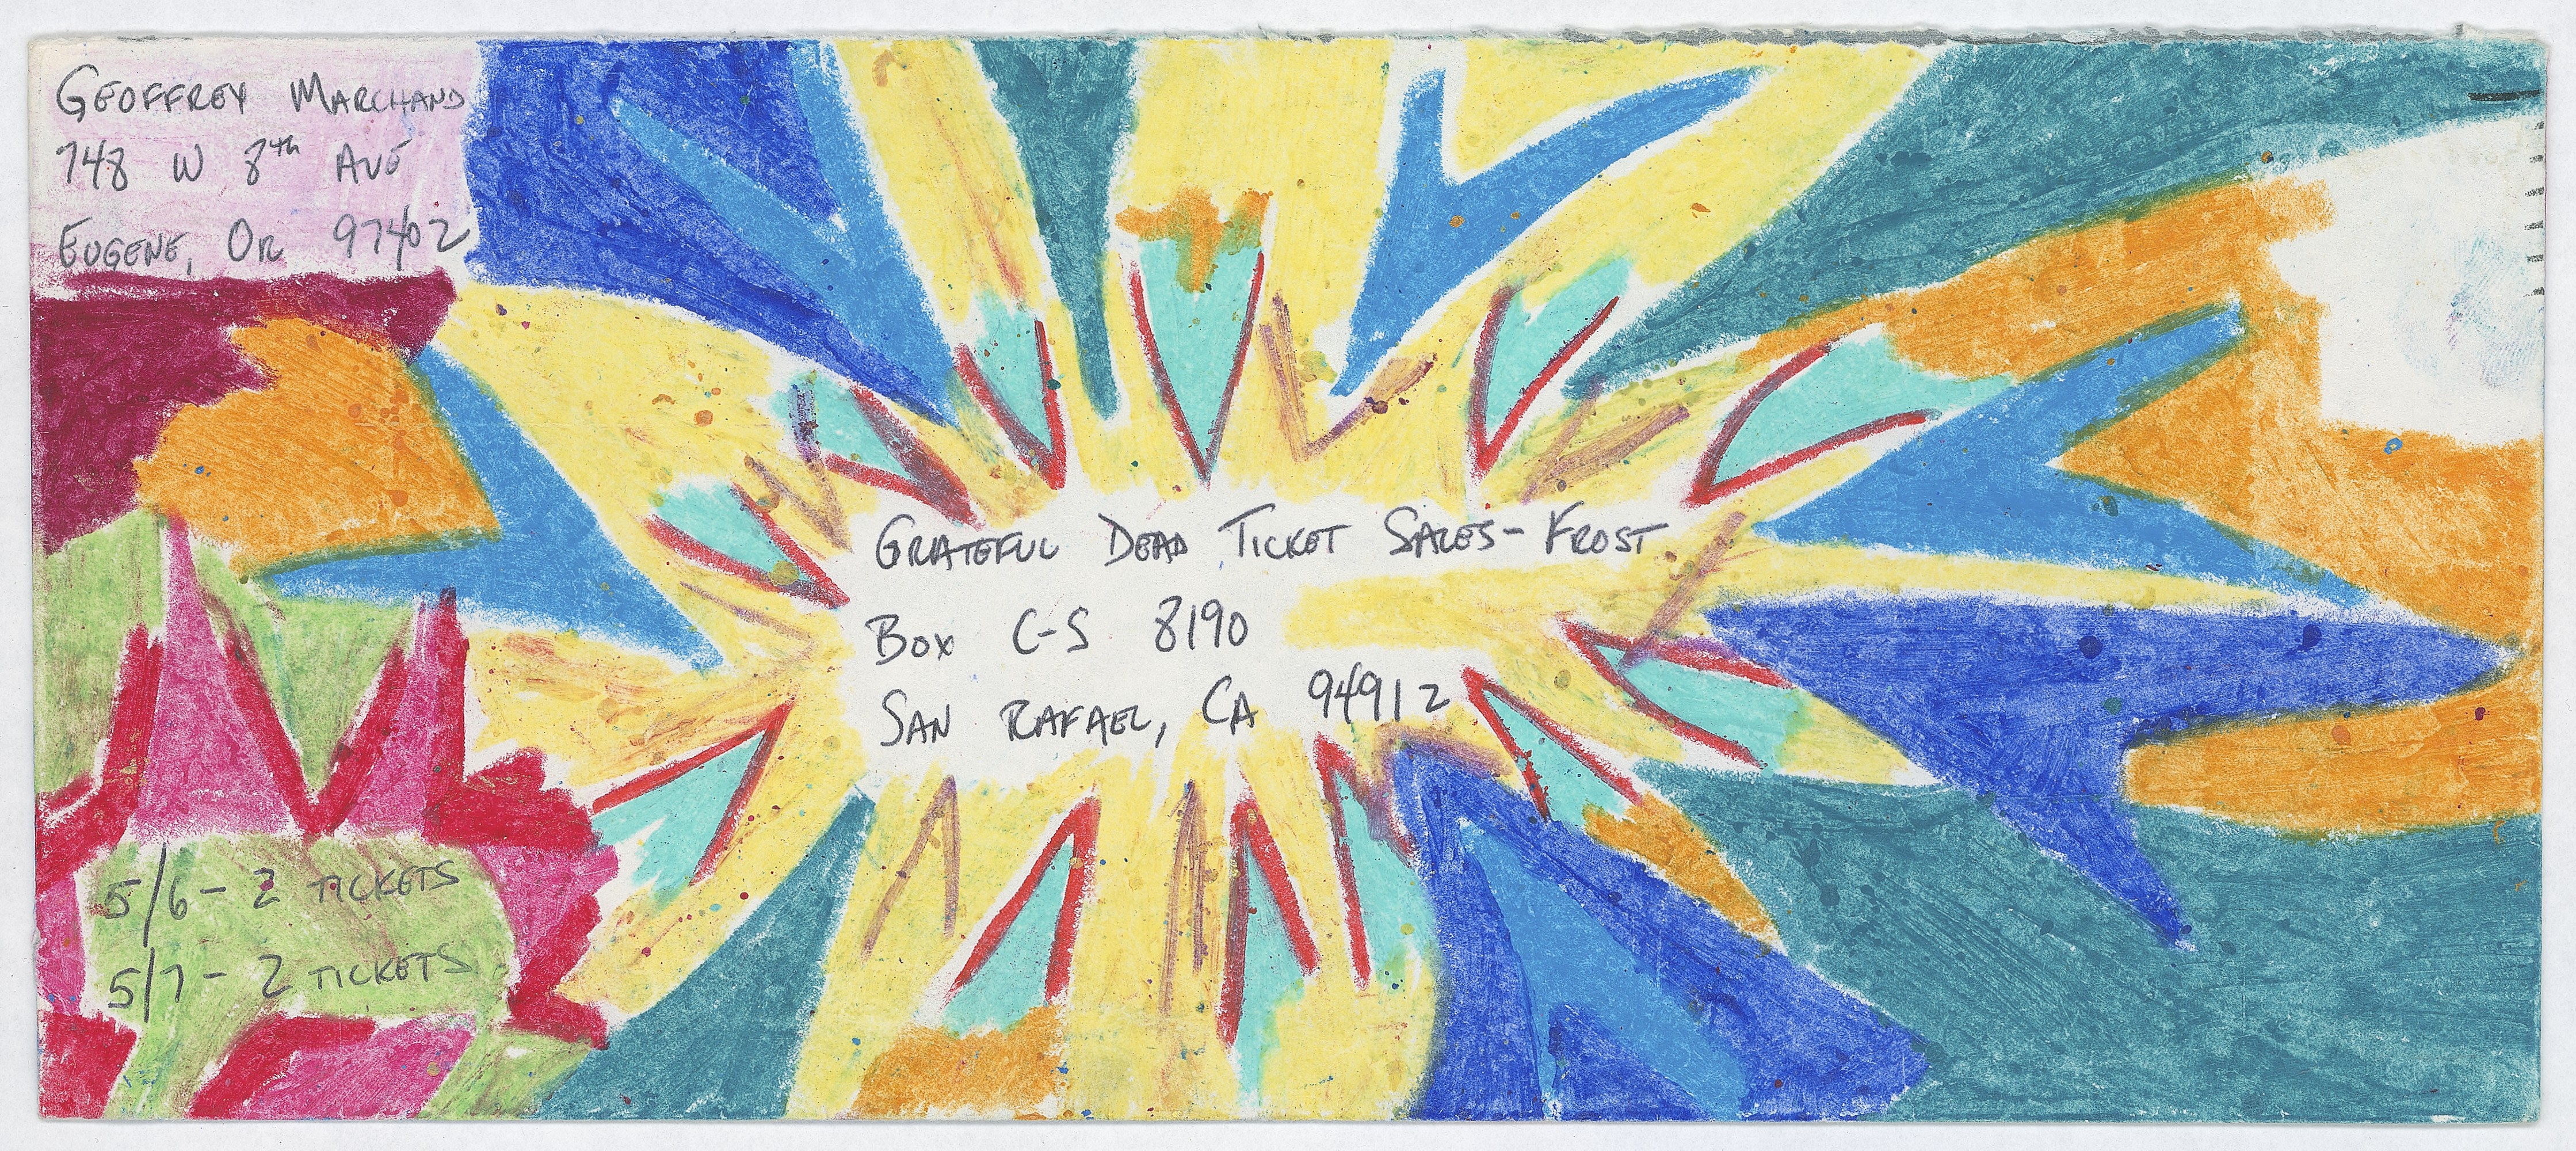 GEOFFREY MARCHAND
748 W 8th AVE
EUGENE, OR 97402
GRATEFUL DEAD TICKET SALES - FROST
BOX C-S 8190
SAN RAFAEL, CA 94912
5/6 - 2 TICKETS
5/7 - 2 TICKETS